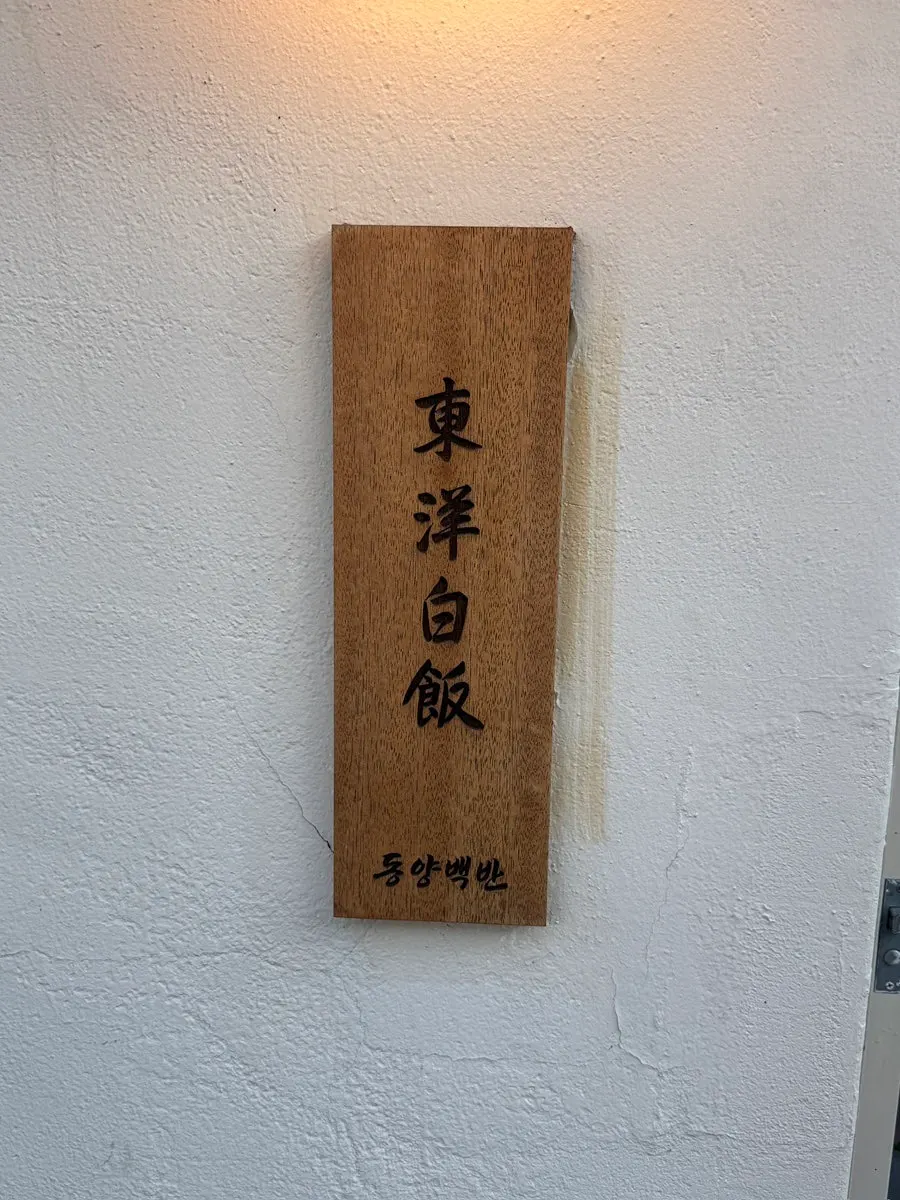 東洋白飯
동양백반